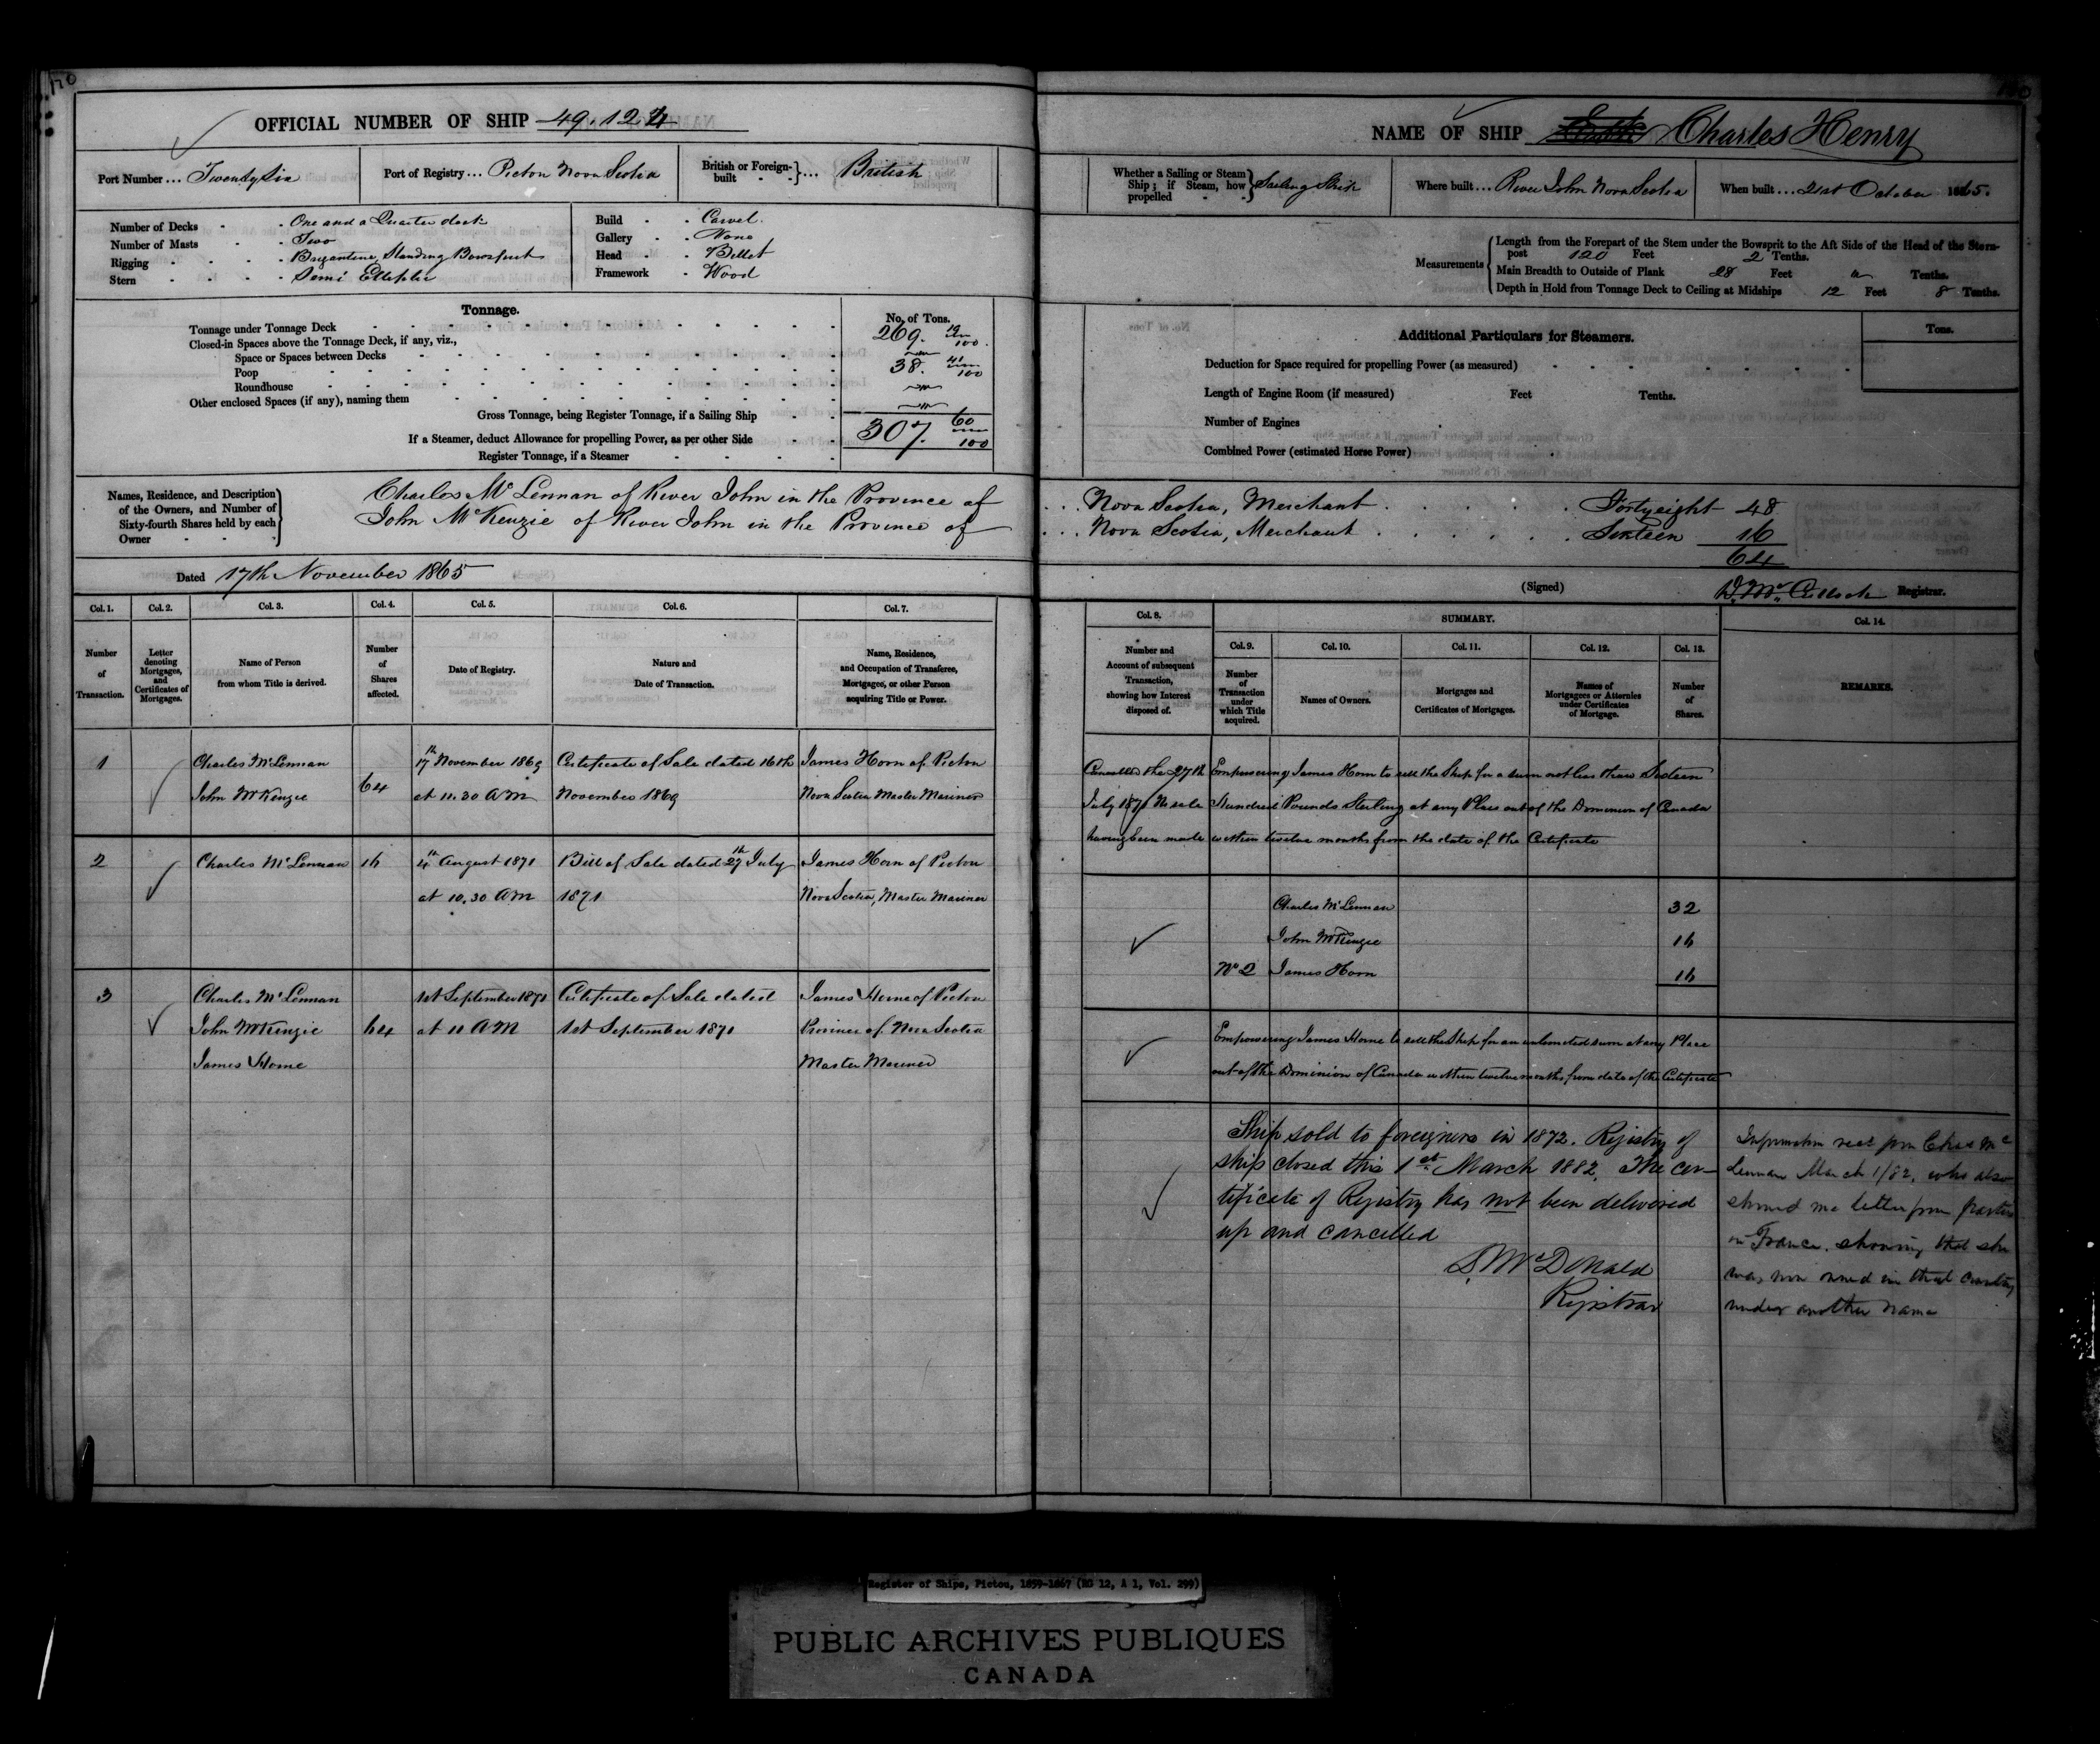 170
OFFICIAL NUMBER OF SHIP 49.124
Port Number ... Twenty Six
Port of Registry ... Pictou Nova Scotia
British or Foreign-built ... British
Number of Decks - One and a Quarter deck
Number of Masts - Two
Rigging - Brigantine, Standing Bowsprit
Stern - Semi Elliptic
Build - Carvel.
Gallery - None
Head - Billet
Framework - Wood
Tonnage.
No. of Tons.
Tonnage under Tonnage Deck 269. 19/100.
Closed-in Spaces above the Tonnage Deck, if any, viz.,
Space or Spaces between Decks
Poop 38. 41/100
Roundhouse
Other enclosed Spaces (if any), naming them
Gross Tonnage, being Register Tonnage, if a Sailing Ship 307. 60/100
If a Steamer, deduct Allowance for propelling Power, as per other Side
Register Tonnage, if a Steamer
Names, Residence, and Description of the Owners, and Number of Sixty-fourth Shares held by each Owner
Charles McLennan of River John in the Province of
John McKenzie of River John in the Province of
Dated 17th November 1865
Col. 1. Col. 2. Col. 3. Col. 4. Col. 5. Col. 6. Col. 7.
Number of Transaction.
Letter denoting Mortgages, and Certificates of Mortgages.
Name of Person from whom Title is derived.
Number of Shares affected.
Date of Registry.
Nature and Date of Transaction.
Name, Residence, and Occupation of Transferee, Mortgagee, or other Person acquiring Title or Power.
1 Charles McLennan 17th November 1869 Certificate of Sale dated 16th James Horn of Pictou
John McKenzie 64 at 11.30 AM November 1869 Nova Scotia Master Mariner
2 Charles McLennan 16 4th August 1871 Bill of Sale dated 27th July James Horn of Pictou
at 10.30 AM 1871 Nova Scotia, Master Mariner
3 Charles McLennan 1st September 1871 Certificate of Sale dated James Horne of Pictou
John McKenzie 64 at 11 AM 1st September 1871 Province of Nova Scotia
James Horne Master Mariner
NAME OF SHIP Charles Henry
Whether a Sailing or Steam Ship; if Steam, how propelled Sailing Ship
Where built ... River John Nova Scotia
When built ... 21st October 1865.
Measurements
Length from the Forepart of the Stem under the Bowsprit to the Aft Side of the Head of the Stern-
post 120 Feet 2 Tenths.
Main Breadth to Outside of Plank 28 Feet Tenths.
Depth in Hold from Tonnage Deck to Ceiling at Midships 12 Feet 8 Tenths.
Additional Particulars for Steamers.
Tons.
Deduction for Space required for propelling Power (as measured)
Length of Engine Room (if measured) Feet Tenths.
Number of Engines
Combined Power (estimated Horse Power)
Nova Scotia, Merchant Forty eight 48
Nova Scotia, Merchant Sixteen 16
64
(Signed) Registrar.
Col. 8. SUMMARY. Col. 14.
Col. 9. Col. 10. Col. 11. Col. 12. Col. 13.
Number and Account of subsequent Transaction, showing how Interest disposed of.
Number of Transaction under which Title acquired.
Names of Owners.
Mortgages and Certificates of Mortgages.
Names of Mortgagees or Attornies under Certificates of Mortgage.
Number of Shares.
REMARKS.
Cancelled the 27th Empowering James Horn to sell the Ship for a sum not less than Sixteen
July 1871 No sale Hundred Pounds Sterling at any Place out of the Dominion of Canada
having been made within twelve months from the date of the Certificate
Charles McLennan 32
John McKenzie 16
No 2 James Horn 16
Empowering James Horne to sell the Ship for an unlimited sum at any Place
out of the Dominion of Canada within twelve months from date of the Certificate
Ship sold to foreigners in 1872. Registry of
ship closed this 1st March 1882. The cer-
tificate of Registry has not been delivered
up and cancelled
D. McDonald
Registrar
Information recd from Chas Mc
Lennan March 1/82, who also
showed me letter from parties
in France, showing that she
was now owned in that country
under another name
Register of Ships, Pictou, 1859-1867 (RG 12, A 1, Vol. 299)
PUBLIC ARCHIVES PUBLIQUES
CANADA